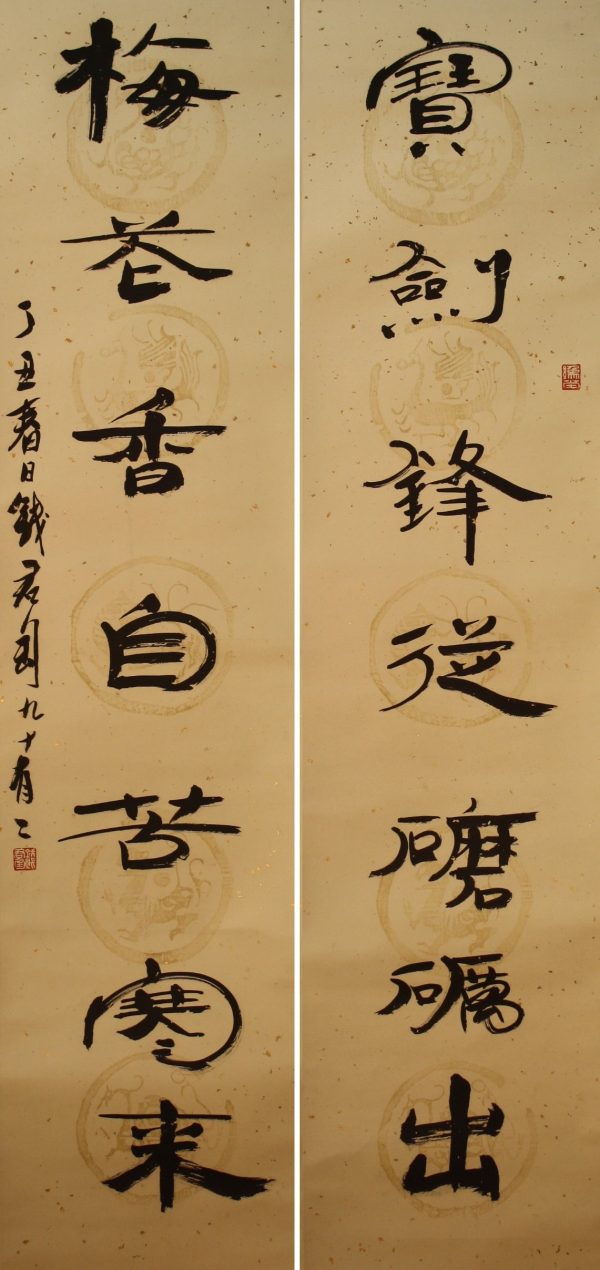 寶劍鋒從磨礪出
梅花香自苦寒來
丁丑春日錢君匋九十有二